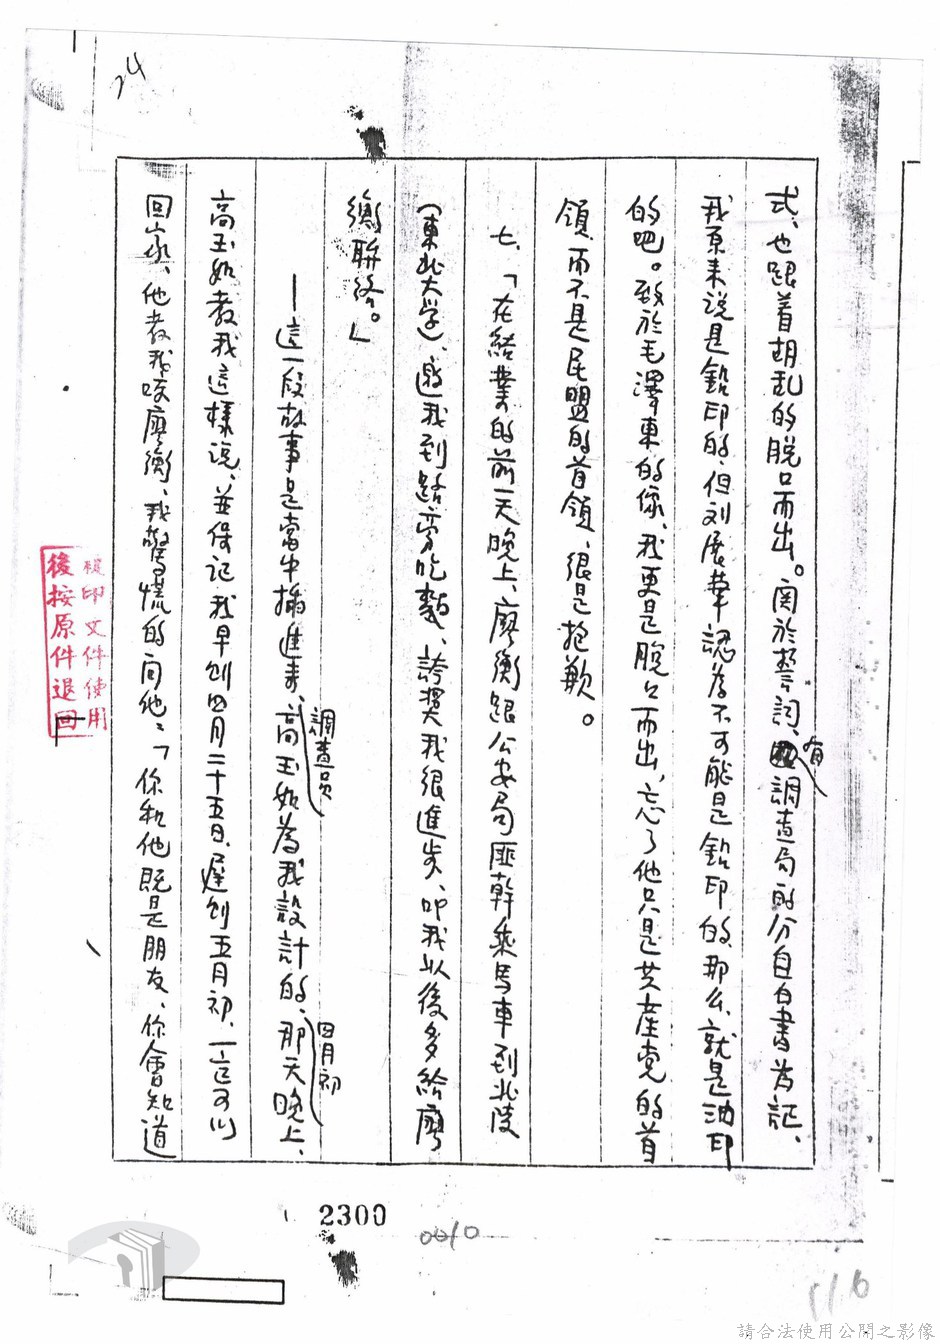 24
式、也跟着胡乱的脱口而出。関於誓詞、有調查局的分自白書为証、
我原来说是鉛印的、但刘展華認为不可能是鉛印的、那么、就是油印
的吧。致於毛澤東的像、我更是脱口而出、忘了他只是共產党的首
領、而不是民盟的首領、很是抱歉。
七、「在結業的前一天晚上、廖衡跟公安局匪幹乘馬車到北陵
(東北大学)、邀我到路旁吃麵、誇奬我很進步、叫我以後多給廖
衡联絡。」
—這一段故事是當中插進来、調查員高玉如為我設計的、四月初那天晚上、
高玉如教我這樣说、並保证我早则四月二十五日、遲则五月初、一定可以
回家、他教我咬廖衡、我驚慌的问他：「你和他既是朋友、你會知道
複印文件使用
後按原件退回
2300
0010
116
請合法使用公開之影像